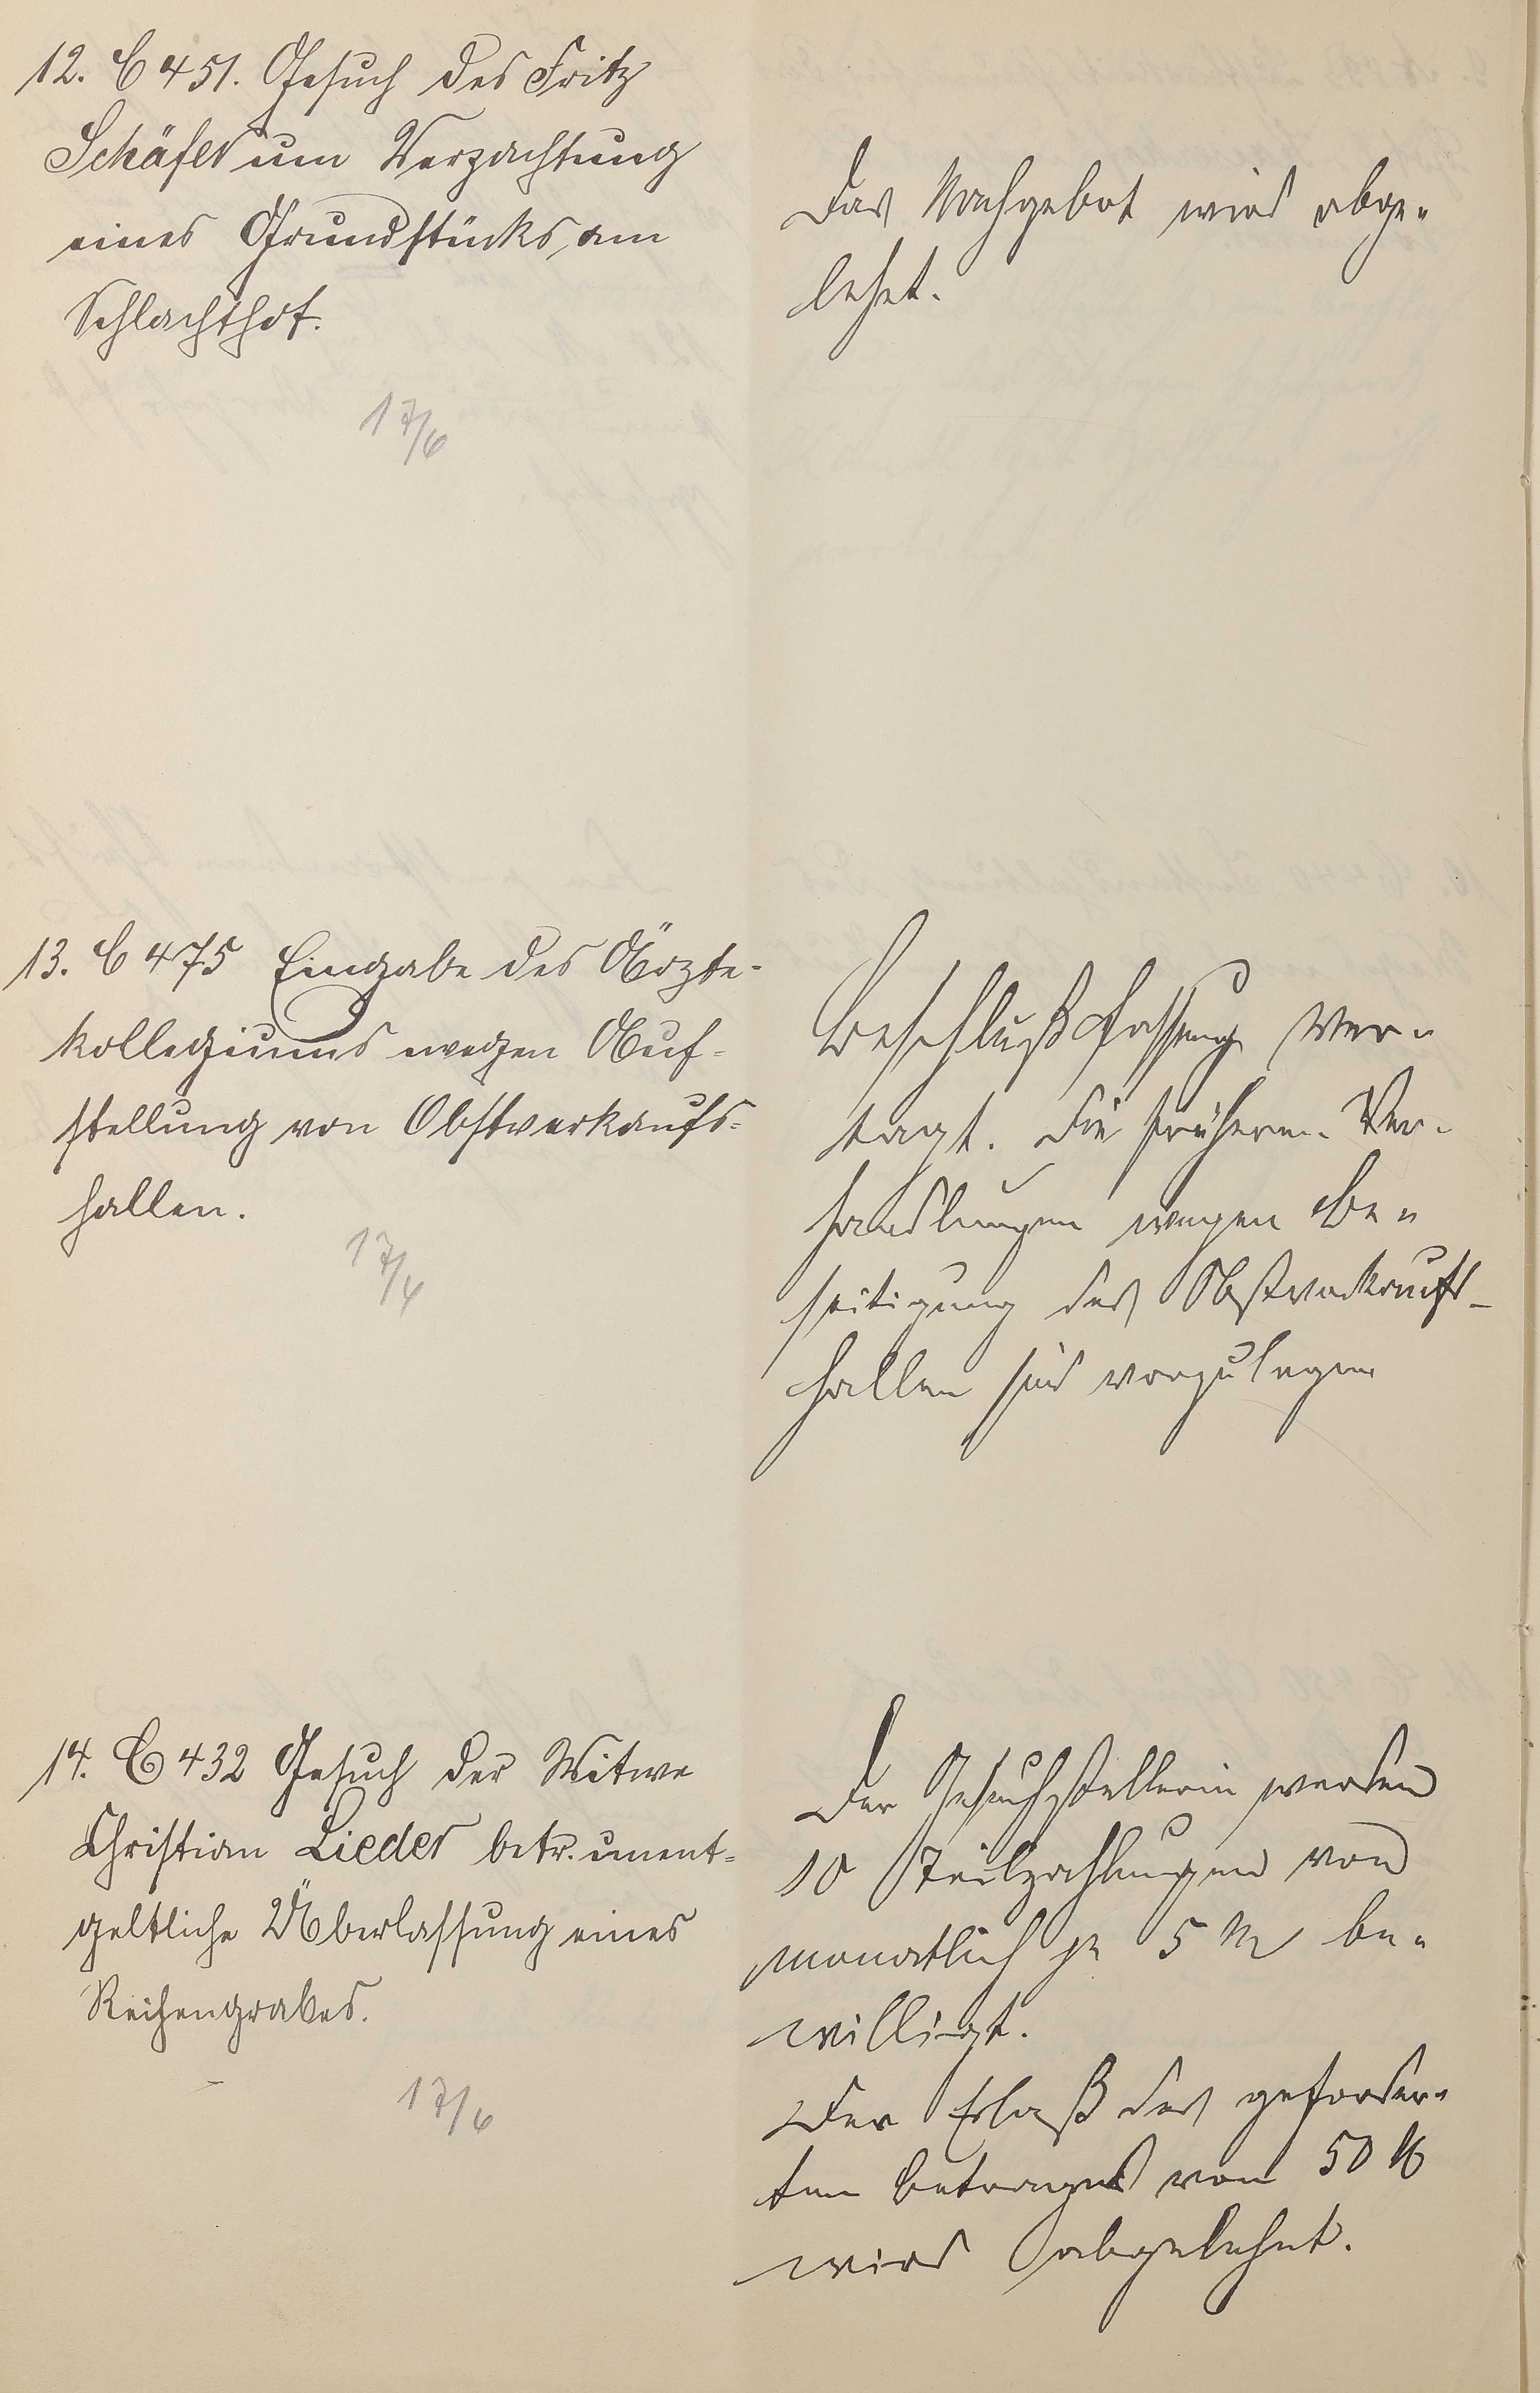 12. C 451. Gesuch des Fritz
Schäfer um Verpachtung
eines Grundstücks am
Schlachthof.
17/6
Das Nachgebot wird abge-
lehnt.
13. C 475 Eingabe des Ärzte-
kollegiums wegen Auf-
stellung von Obstverkaufs-
hallen.
17/6
Beschlußfassung ver-
tagt. Die früheren Ver-
handlungen wegen Be-
seitigung der Obstverkaufs-
hallen sind vorzulegen
14. C 432 Gesuch der Witwe
Christian Lieder betr. unent-
geltliche Überlassung eines
Reihengrabes.
17/6
Der Gesuchstellerin werden
10 Teilzahlungen von
monatlich je 5 M be-
willigt.
Der Erlaß des geforder-
ten Betrages von 50 M
wird abgelehnt.